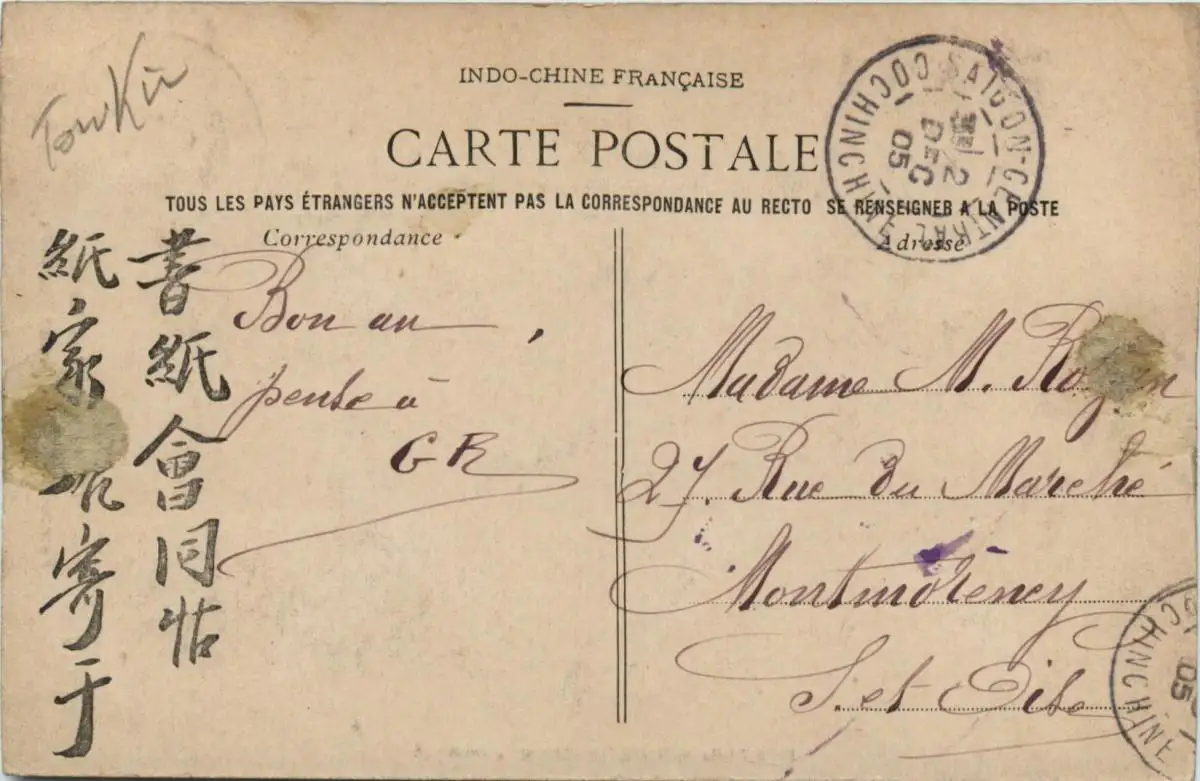 TonKin
INDO-CHINE FRANÇAISE
CARTE POSTALE
TOUS LES PAYS ÉTRANGERS N'ACCEPTENT PAS LA CORRESPONDANCE AU RECTO SE RENSEIGNER A LA POSTE
SAIGON-CENTRAL
COCHINCHINE
2
DEC
05
Correspondance
Adresse
書紙會同帖
紙家
寄于
Bon an
pensée à
GR
Madame M.
27. Rue du Marché
Montmorency
S. et Oise
CHINCHINE
05